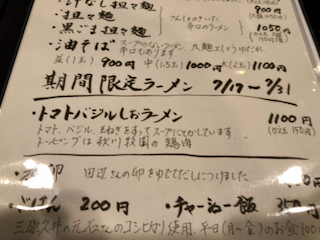 汁なし担々麺 900円
・担々麺
・黒ごま担々麺 辛口のラーメン 1050円
・油そば スープのないラーメン 太麺としょうゆだれ
並(1玉) 900円 中(1.5玉) 1000円 大(2玉) 1100円
期間限定ラーメン 7/17〜7/31
・トマトバジルしおラーメン 1100円
トマト、バジル、玉ねぎをすってスープにとかしています
トッピングは秋川牧園の鶏肉
卵 田辺さんの卵をゆでてだしにつけました 円
・ごはん 200円 ・チャーシュー飯 350円
のコシヒカリ使用、平日(月〜金)のお昼100